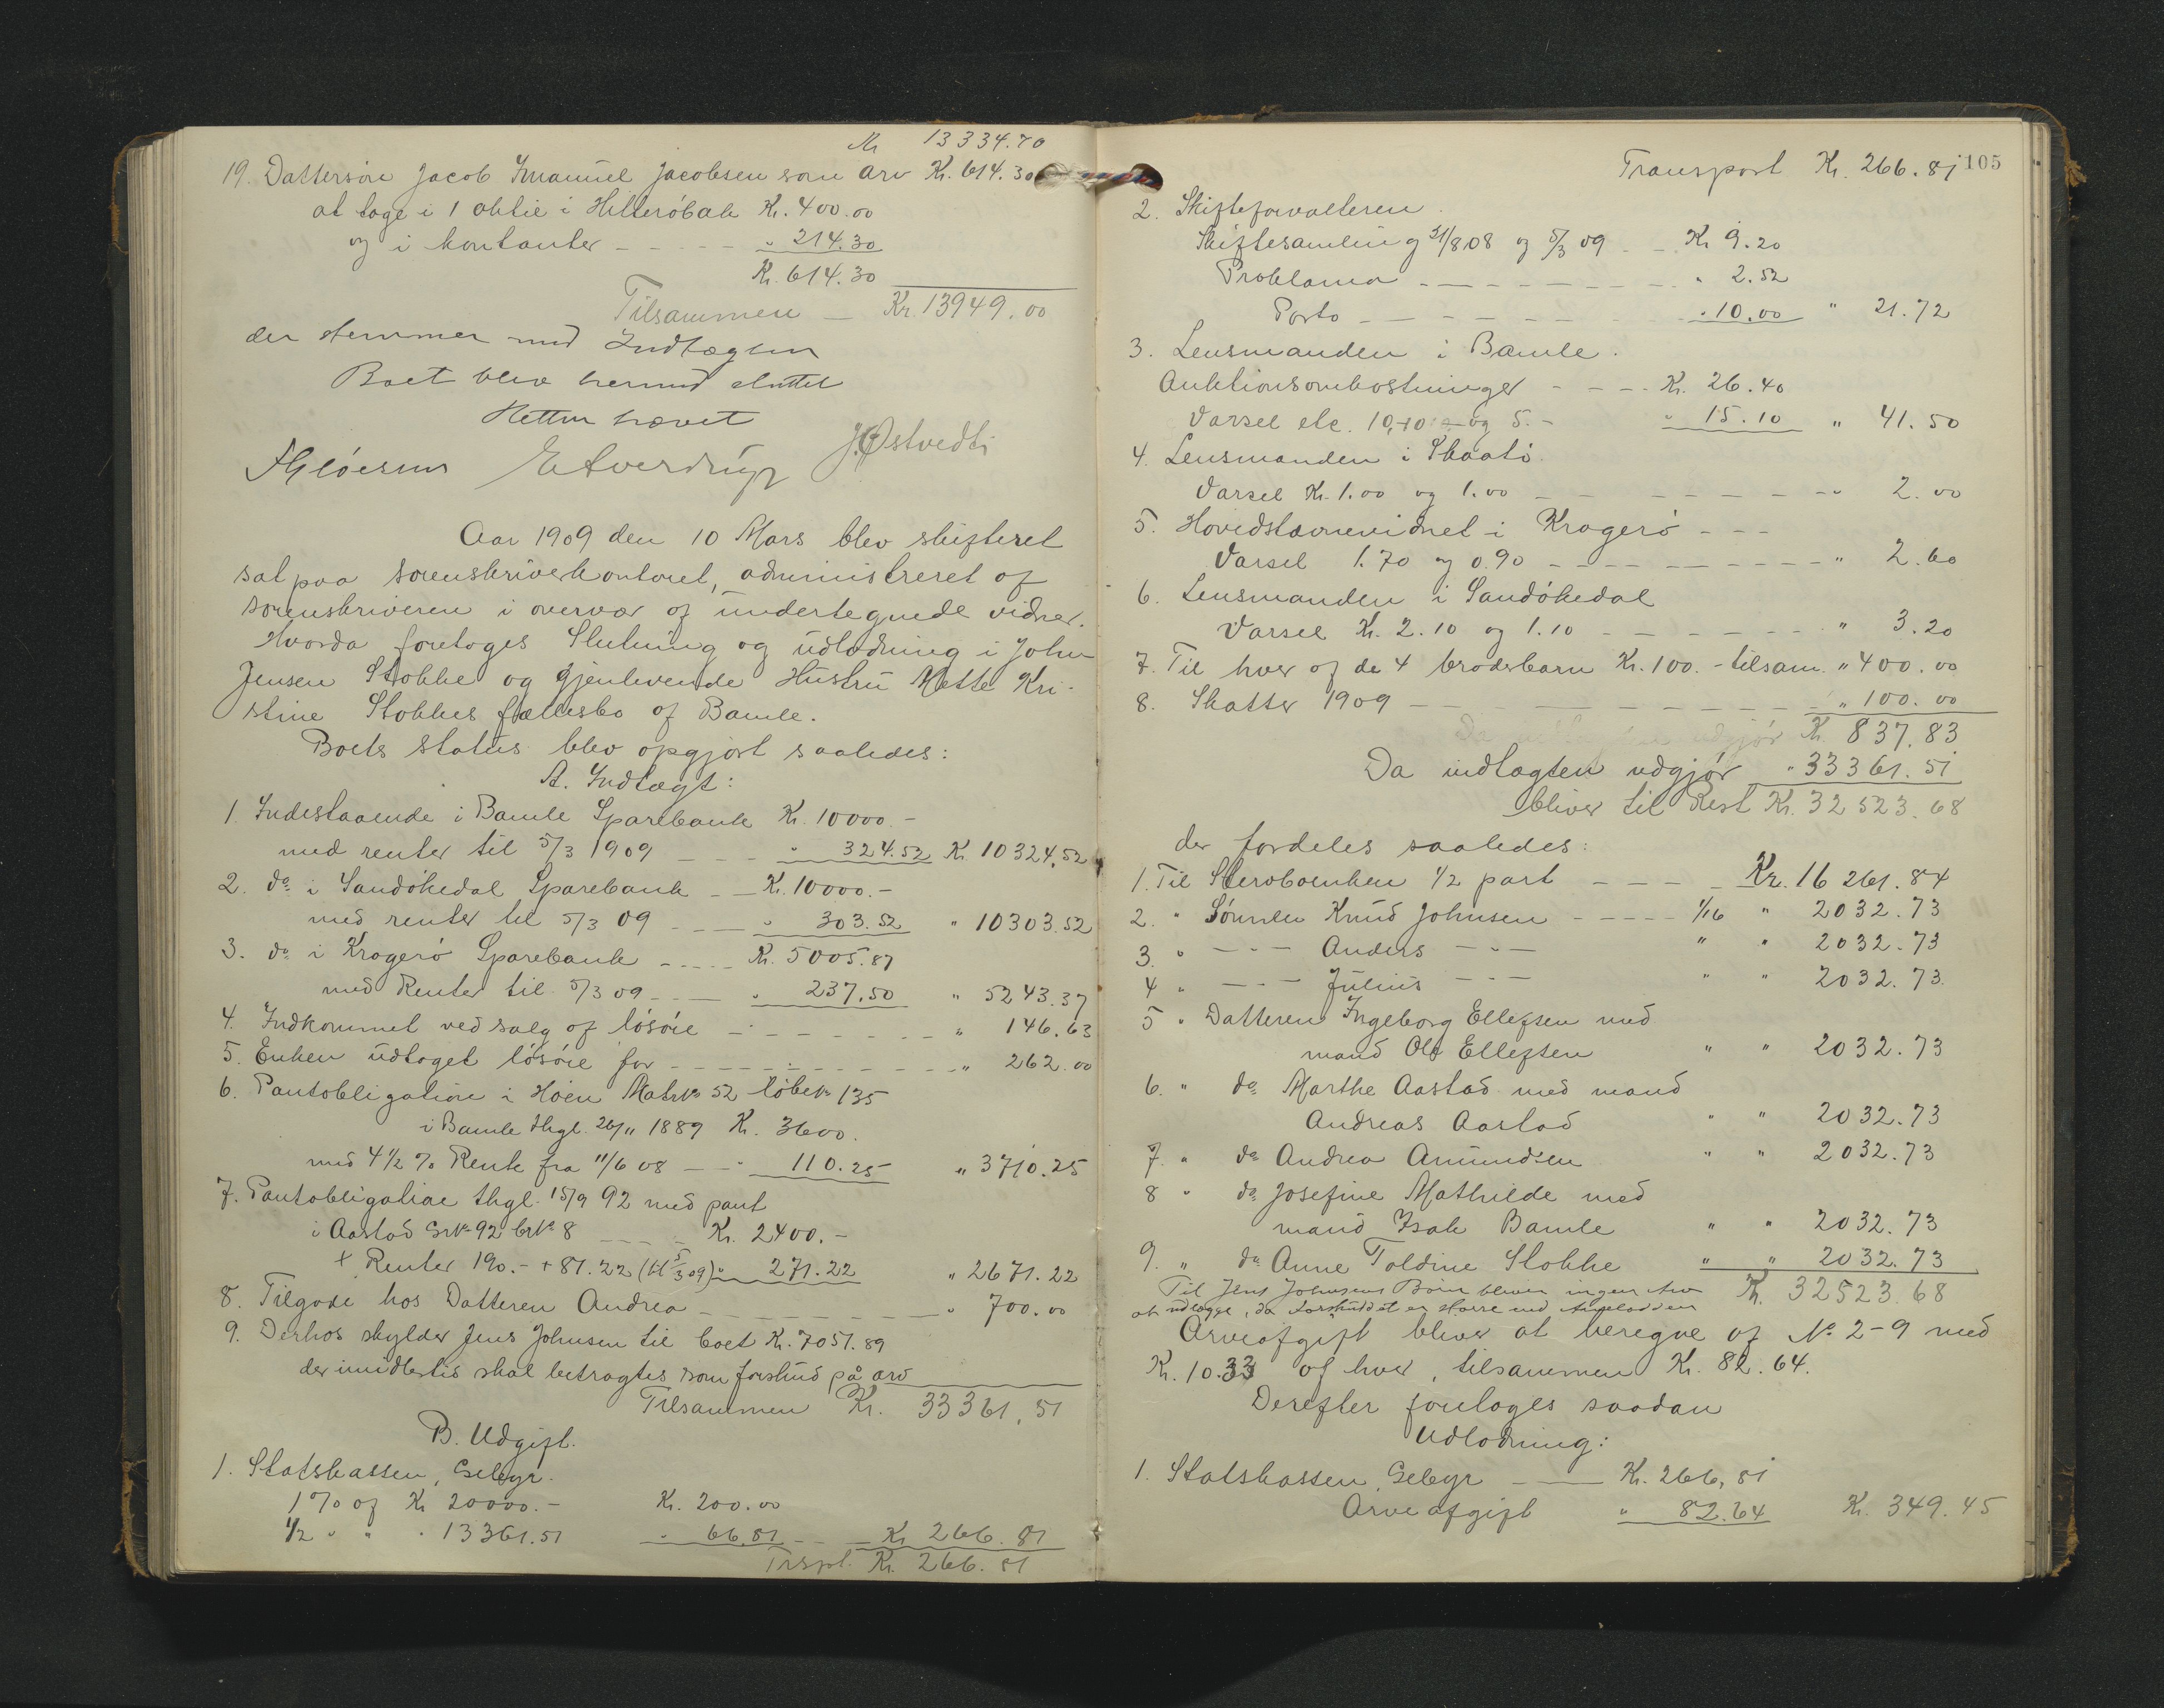 Kr 13334.70
19. Dattersøn Jacob Imanuel Jacobsen som arv Kr. 614.30
at tage i 1 aktie i Hitterøbak Kr. 400.00
og i kontanter - - - - - " 214.30
Kr. 614.30
Tilsammen - Kr. 13949.00
der stemmer med Indtægten
Boet blev hermed sluttet
Retten hævet
J. Østvedt
Aar 1909 den 10 Mars blev skifteret
sat paa sorenskriverkontoret, administreret af
sorenskriveren i overvær af undertegnede vidner.
Hvorda foretoges Slutning og udlodning i John
Jensen Stokke og gjenlevende Hustru Mette Kri-
stine Stokkes fællesbo af Bamle.
Boets status blev opgjort saaledes:
A. Indtægt:
1. Indestaaende i Bamle Sparebank Kr. 10000.-
med renter til 5/3 1909 - - - " 324.52 Kr. 10324,52
2. do i Sandøkedal Sparebank - - Kr. 10000.-
med renter til 5/3 09 - - - " 303.52 " 10303.52
3. do i Kragerø Sparebank - - - - Kr. 5005.87
med Renter til 5/3 09 - - - " 237,50 " 5243.37
4. Indkommet ved salg af løsøre - - - - - - - " 146.63
5. Enken udtaget løsøre for - - - - - - - - - - " 262.00
6. Pantobligation i Høen Matr№ 52 løbe№ 135
i Bamle thgl. 26/11 1889 Kr. 3600.
med 4½ % Rente fra 11/6 08 - - " 110.25 " 3710.25
7. Pantobligation thgl. 15/9 92 med pant
i Aastad Gr№ 92 br№ 8 - - - - Kr. 2400.-
+ Renter 190.- + 81.22 (til 5/3 09) " 271.22 " 2671.22
8. Tilgode hos Datteren Andrea - - - - - - - - " 700.00
9. Derhos skylder Jens Johnsen til boet Kr. 7051.89
der imidlertid skal betragtes som forskud på arv
Tilsammen Kr. 33361,51
B. Udgift.
1. Statskassen, Gebyr.
1% af Kr 20000.- Kr. 200.00
½ " " " 13361.51 " 66,81 - - Kr 266.81
Trspt. Kr. 266.81
Transport Kr. 266.81 105
2. Skifteforvalteren.
Skiftesamling 21/8 08 og 5/3 09 - - Kr 9.20
Proklama - - - - - - - - - " 2.52
Porto - - - - - - - - " 10.00 " 21.72
3. Lensmanden i Bamle.
Auktionsomkostninger - - - - Kr. 26.40
Varsel etc. 10,10 og 5.- " 15.10 " 41.50
4. Lensmanden i Skaatø.
Varsel Kr. 1.00 og 1.00 - - - - - - - - - " 2.00
5. Hovedstævnevidnet i Kragerø - - -
Varsel 1.70 og 0.90 - - - - - - - - - - " 2.60
6. Lensmanden i Sandøkedal
Varsel Kr. 2.10 og 1.10 - - - - - - - " 3.20
7. Til hver af de 4 broderbarn Kr. 100.- tilsam. " 400.00
8. Skatter 1909 - - - - - - - - - - - " 100.00
Kr. 837.83
Da indtægten udgjør " 33361.51
bliver til Rest Kr. 32523.68
der fordeles saaledes:
1. Til Stervboenken 1/2 part - - - - Kr. 16261.84
2. " Sønnen Knud Johnsen - - - - - 1/16 " 2032.73
3. " - " - Anders - " - " " 2032.73
4 " - " - Julius - " - " " 2032.73
5 " Datteren Ingeborg Ellefsen med
mand Ole Ellefsen " " 2032.73
6. " do Marthe Aastad med mand
Andreas Aastad " " 2032.73
7. " do Andrea Amundsen " " 2032.73
8 " do Josefine Mathilde med
mand Isak Bamle " " 2032.73
9. " do Anne Toldine Stokke " " 2032.73
Til Jens Johnsens Børn bliver ingen Arv Kr. 32523.68
at udlægge, da Forskuddet er større end Arvelodden
Arveafgift bliver at beregne af № 2-9 med
Kr. 10.33 af hver, tilsammen Kr. 82.64.
Derefter foretoges saadan
Udlodning:
1. Statskassen, Gebyr - - - Kr. 266,81
Arveafgift " 82.64 Kr. 349.45